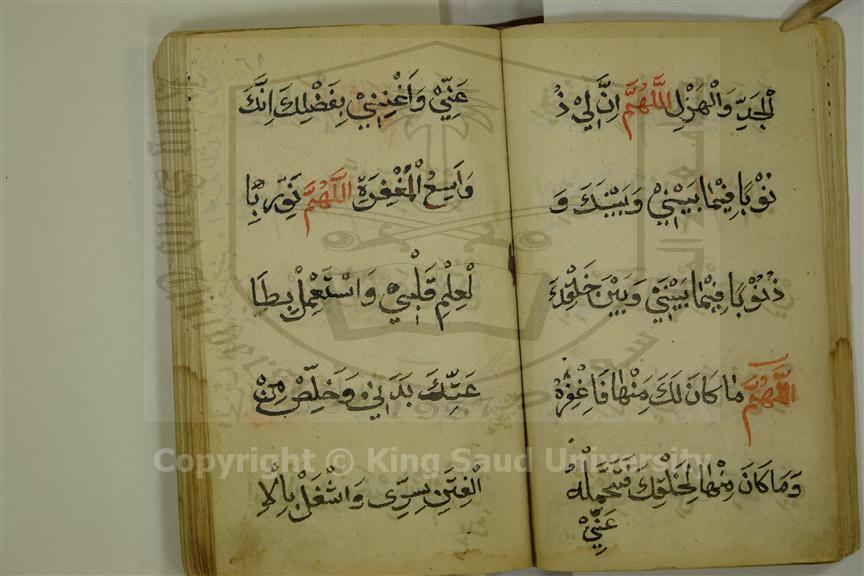 الْجَدِّ وَالْهَزْلِ اللَّهُمَّ اِنَّ لِيْ ذُ
نُوْبًا فِيْمَا بَيْنِيْ وَبَيْنَكَ وَ
ذُنُوْبًا فِيْمَا بَيْنِيْ وَبَيْنَ خَلْقِكَ
اللَّهُمَّ مَا كَانَ لَكَ مِنْهَا فَاغْفِرْهُ
وَمَا كَانَ مِنْهَا لِخَلْقِكَ فَتَحَمَّلْهُ
عَنِّيْ
عَنِّيْ وَاَغْنِنِيْ بِفَضْلِكَ اِنَّكَ
وَاسِعُ الْمَغْفِرَةِ اللَّهُمَّ نَوِّرْ بِا
لْعِلْمِ قَلْبِيْ وَاسْتَعْمِلْ بِطَا
عَتِكَ بَدَنِيْ وَخَلِّصْ مِنَ
الْفِتَنِ سِرِّى وَاشْغَلْ بِالْاِ
Copyright © King Saud University
1957